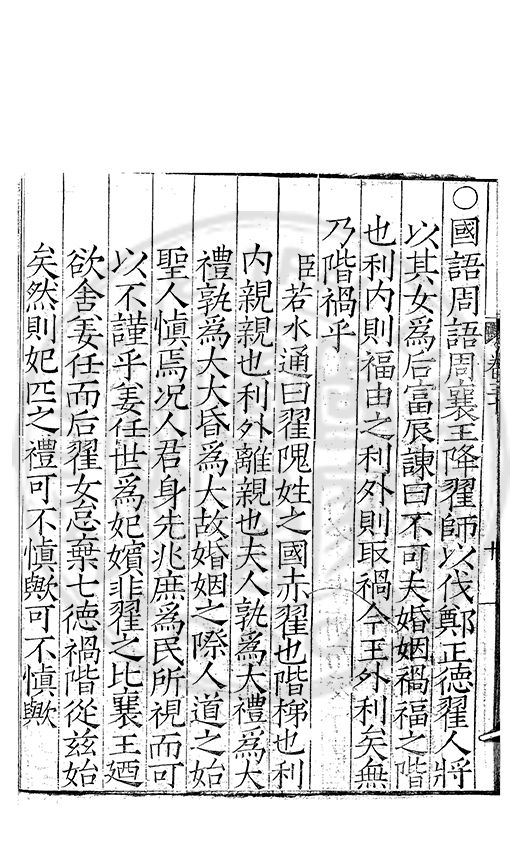 ○國語周語周襄王降翟師以伐鄭王德翟人將
以其女爲后富辰諫曰不可夫婚姻禍福之階
也利内則福由之利外則取禍今王外利矣無
乃階禍乎
臣若水通曰翟隗姓之國赤翟也階梯也利
内親親也利外離親也夫人孰爲大禮爲大
禮孰爲大大昏爲大故婚姻之際人道之始
聖人愼焉况人君身先兆庶爲民所視而可
以不謹乎姜任世爲妃嬪非翟之比襄王廼
欲舍姜任而后翟女怠棄七德禍階從兹始
矣然則妃匹之禮可不愼歟可不愼歟